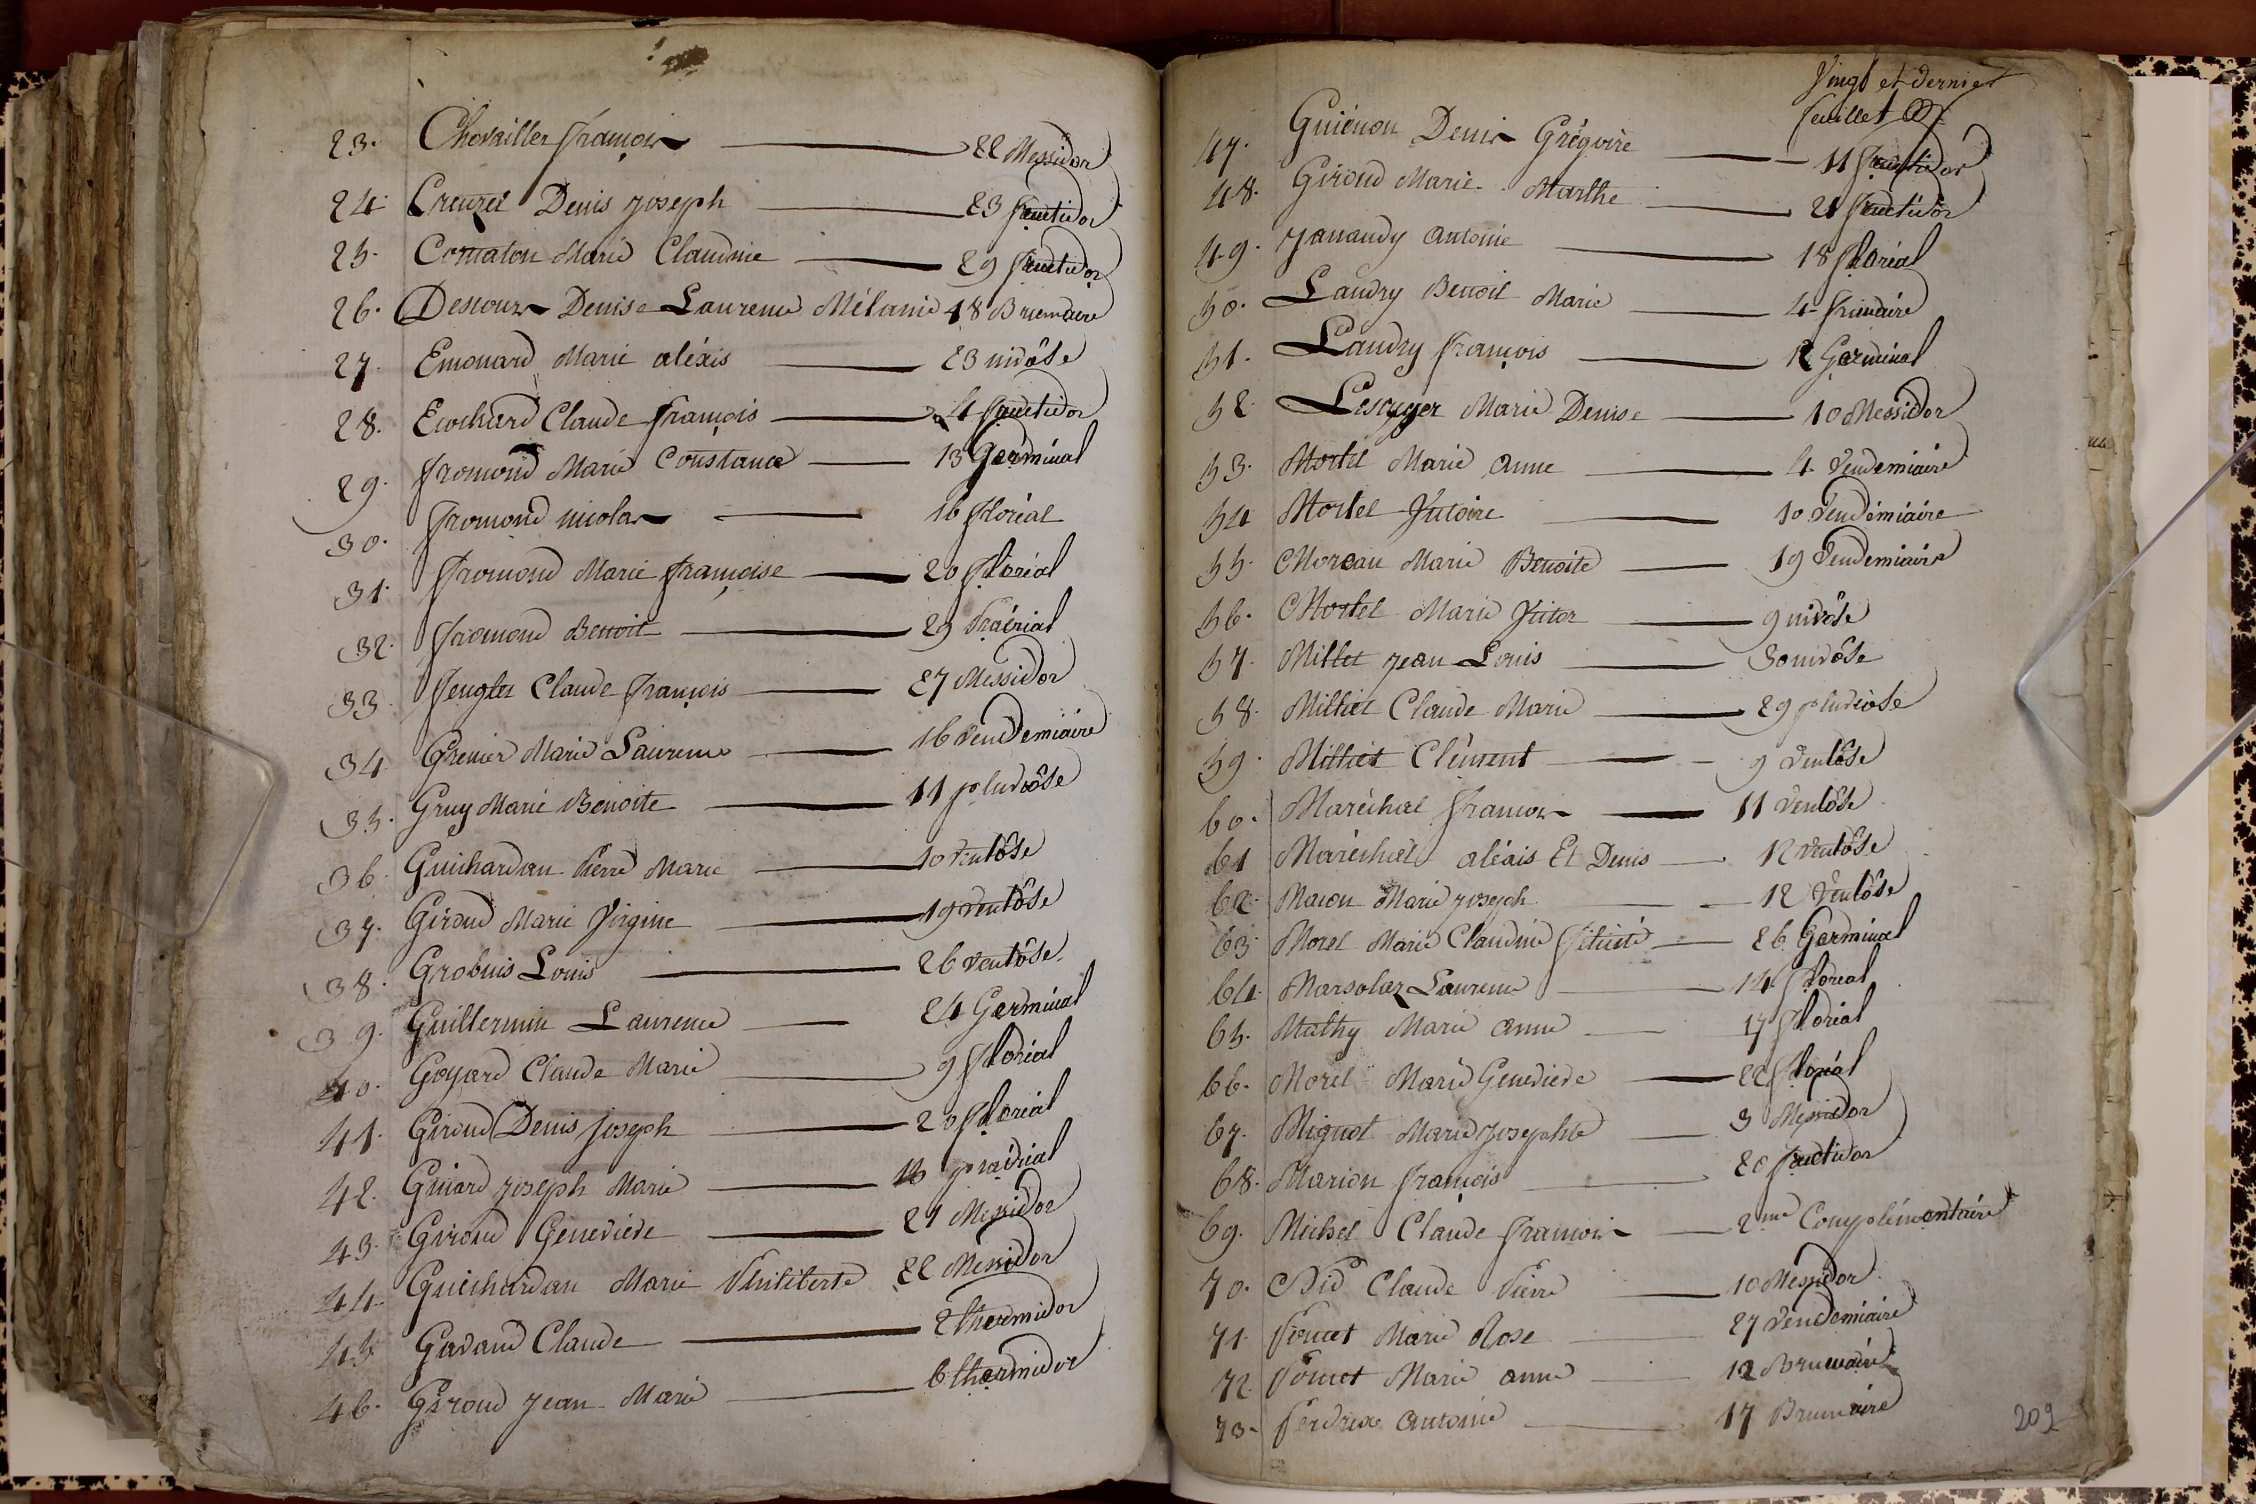 23. Chevaillier françois 22 Messidor
24. Creuzet Denis joseph 23 fructidor
25. Comaton Marie Claudine 29 fructidor
26. Descours Denise Laurence Mélanie 18 Brumaire
27. Emonard Marie aléxis 23 nivôse
28. Ecochard Claude françois 4 fructidor
29. fromond Marie Constance 13 Germinal
30. fromond nicolas 16 floréal
31. fromond Marie françoise 20 floréal
32. fromond Benoit 29 Prairial
33 fenglet Claude françois 27 Messidor
34. Grenier Marie Laurence 16 vendemiaire
35. Gruy Marie Benoite 11 pluviôse
36 Guichardan Pierre Marie 10 ventôse
37. Giroud Marie Virginie 19 ventôse
38. Grobuis Louis 26 ventôse
39. Guillermin Laurence 24 Germinal
40. Goyard Claude Marie 9 floréal
41. Giroud Denis joseph 20 floréal
42. Guiard joseph Marie prairial
43. Giroud Geneviève 21 Messidor
44. Guichardan Marie Philiberte 22 Messidor
45 Gavand Claude 2 thermidor
46. Giroud jean Marie 6 thermidor
Vingt et dernier
feuillet
47. Guiénon Denis Grégoire 11 fructidor
48. Giroud Marie Marthe 21 fructidor
49. janaudy antoine 18 floréal
50. Landry Benoit Marie 4 frimaire
51. Landry françois 12 Germinal
52 Lescuyer Marie Denise 10 Messidor
53. Mortel Marie anne 4 vendemiaire
54 Mortel Victoire 10 vendémiaire
55. Moreau Marie Benoite 19 vendemiaire
56. Mortel Marie Victor 9 nivôse
57. Millet jean Louis 30 nivôse
58. Milliet Claude Marie 29 pluviôse
59. Milliet Clément 9 ventôse
60. Maréchal françois 11 ventôse
61 Maréchal aléxis Et Denis 12 ventôse
62. Macon Marie joseph 12 Ventôse
63. Morel Marie Claudine félicité 26 Germinal
64. Marsolaz Laurence 14 floréal
65. Mathy Marie anne 17 floréal
66. Morel Marie Geneviève 22 floréal
67. Mignot Marie josephte 3 Messidor
68. Marion françois 20 fructidor
69. Michel Claude françois 2me Complémentaire
70. Nid Claude Pierre 10 Messidor
71. Poncet Marie Rose 27 vendemiaire
72. Poncet Marie anne 12 Brumaire
73. Perdrix antoine 17 Brumaire
209